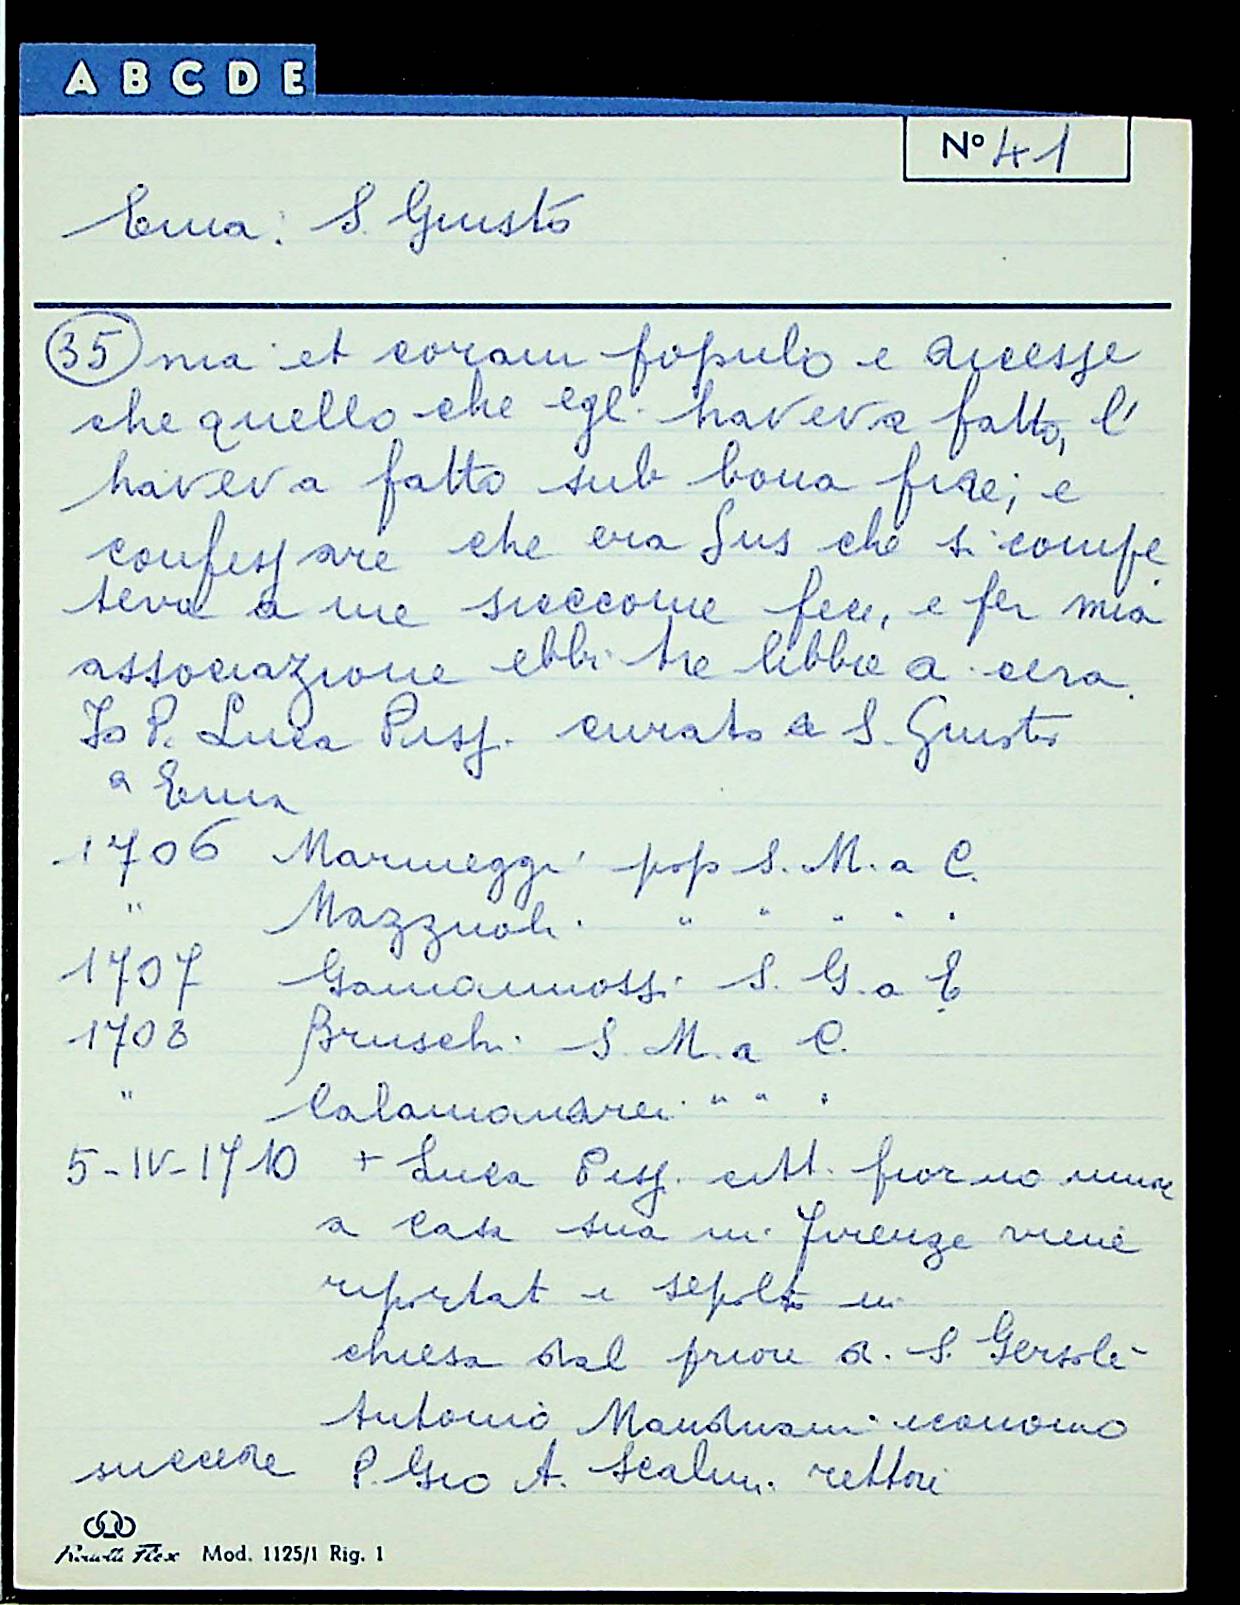 A B C D E
Nº 41
Ema: S. Giusto
35 ma et coram populo e dicesse
che quello che egli haveva fatto, l'
haveva fatto sub bona fide; e
confessare che era Jus che si compe
teva a me siccome fece, e per mia
associazione ebbi tre libbre di cera.
Io P. Luca curato di S. Giusto
a Ema
1706 Marmeggi pop S. M. a C.
" Mazzuoli " " " " "
1707 Gamannossi S. G. a E
1708 Bruschi S. M. a C.
" Calamandrei " " "
5-IV-1710 + Luca citt. fior no muore
a casa sua in Firenze viene
riportat e sepolto in
chiesa dal priore di S. Gersolè
Antonio economo
succede P. Gio A. Scalini rettore
Mod. 1125/1 Rig. 1